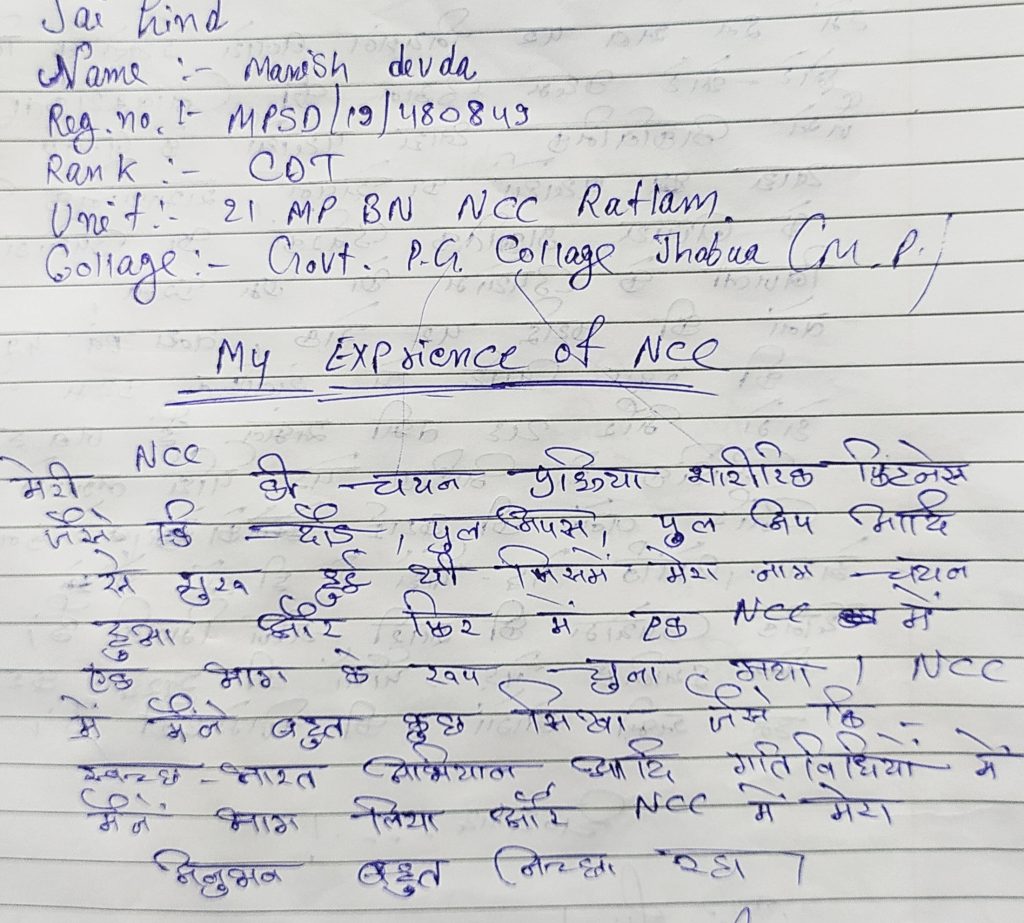 Jai hind
Name :- Manish devda
Reg. no. :- MPSD/19/480849
Rank :- CDT
Unit :- 21 MP BN NCC Ratlam.
Collage :- Govt. P.G. Collage Jhabua (M.P.)
My Exprience of NCC
मेरी NCC की चयन प्रक्रिया शारीरिक फिटनेस
जैसे कि दौड, पुल अपस, पुल अप आदि
से शुरू हुई थी जिसमें मेरा नाम चयन
हुआ और फिर में एक NCC में
एक भाग के रूप चुना गया। NCC
में मैंने बहुत कुछ सिखा जैसे कि -
स्वच्छ भारत अभियान आदि गतिविधियों में
मैंने भाग लिया और NCC में मेरा
अनुभव बहुत अच्छा रहा।